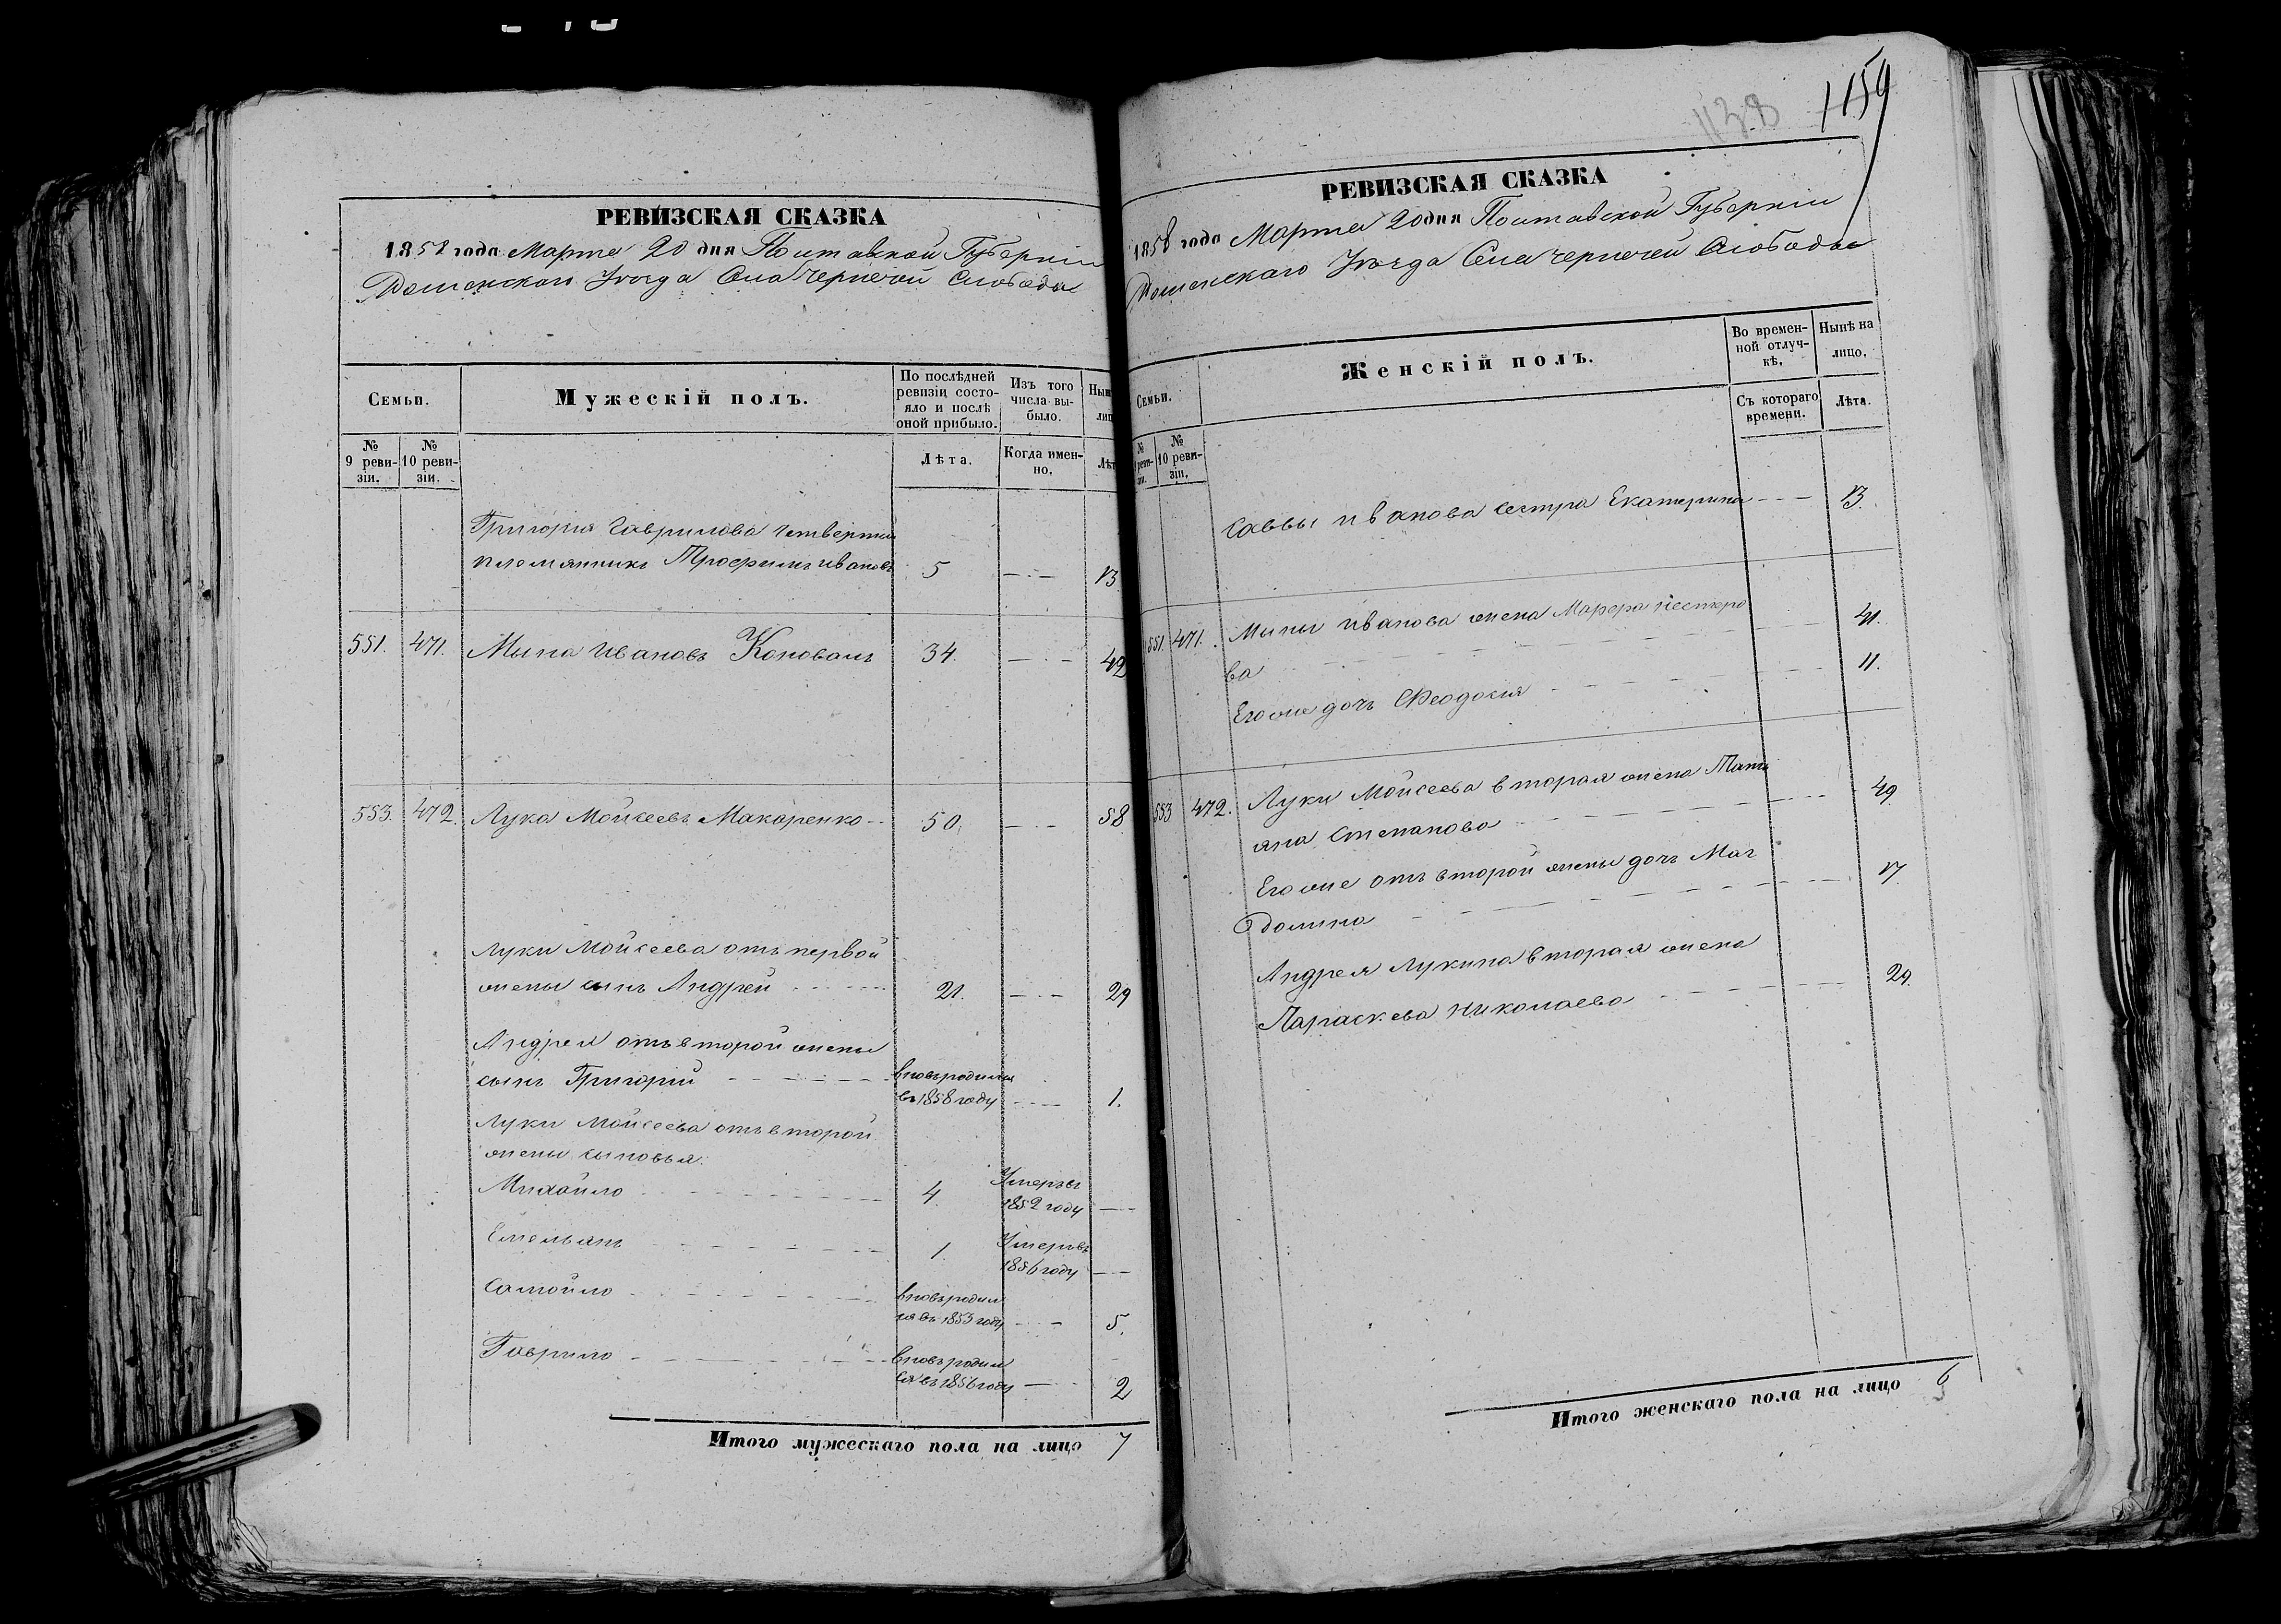 РЕВИЗСКАЯ СКАЗКА
1858 года Марта 20 дня Полтавской Губерніи
Роменскаго Уѣзда Села Чернечей Слободы
Семьи.
Мужескій полъ.
По послѣдней ревизіи состояло и послѣ оной прибыло.
Изъ того числа выбыло.
Нын
лиц
№ 9 ревизіи.
№ 10 ревизіи.
Лѣта.
Когда именно.
Лѣт
Григорія Гаврилова четвертый
племянникъ Трофимъ Ивановъ 5 13
551. 471. Мина Ивановъ Коновалъ 34. 42
553. 472. Лука Мойсеевъ Макаренко 50. 58
Луки Мойсеева отъ первой
жены сынъ Андрей 21. 29
Андрея отъ второй жены
сынъ Григорій вновь родился
въ 1858 году 1.
Луки Мойсеева отъ второй
жены сыновья:
Михайло 4. Умеръ въ
1852 году
Емельянъ 1. Умеръ въ
1856 году
Самойло вновь родил
ся въ 1853 году 5.
Гаврило вновь родил
ся въ 1856 году 2
Итого мужескаго пола на лицо 7
1138
1159
РЕВИЗСКАЯ СКАЗКА
1858 года Марта 20 дня Полтавской Губерніи
Роменскаго Уѣзда Села Чернечей Слободы
Семьи.
Женскій полъ.
Во временной отлучкѣ.
Нынѣ на лицо.
№ 9 ревизіи.
№ 10 ревизіи.
Съ котораго времени.
Лѣта.
Саввы Иванова сестра Екатерина 13.
551. 471. Мины Иванова жена Марфа Нестеро
ва 41.
Его же дочь Феодосія 11.
553 472. Луки Мойсеева вторая жена Тать
яна Степанова 49.
Его же отъ второй жены дочь Маг
далина 17.
Андрея Лукина вторая жена
Параскева Николаева 29.
Итого женскаго пола на лицо 6